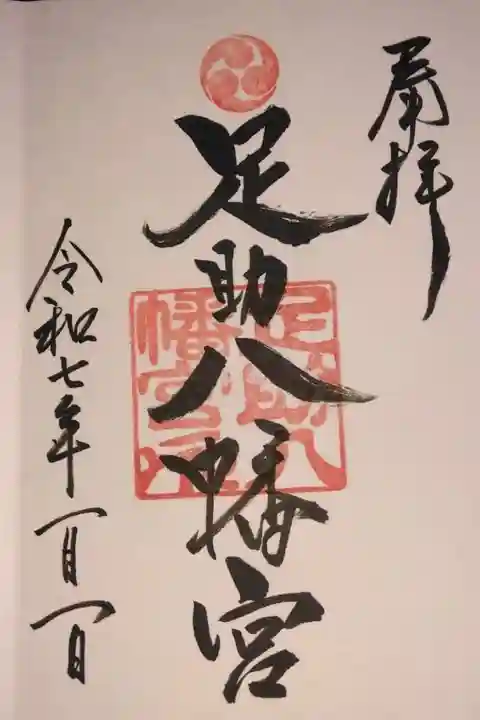 奉拝
足助八幡宮
足助八幡宮印
令和七年一月一日